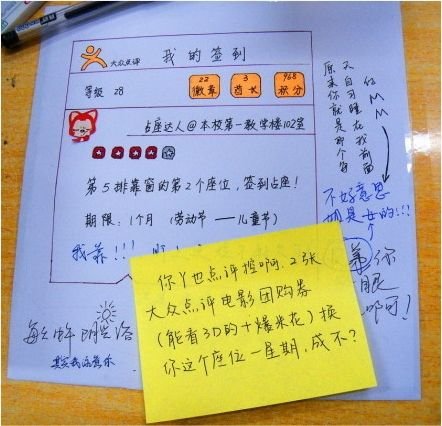 大众点评
我的签到
等级 28
22
徽章
3
酋长
968
积分
占座达人@本校第一教学楼102室
第5排靠窗的第2个座位,签到占座!
期限:1个月(劳动节——儿童节)
我靠!!!
你丫也点评控啊.2张
大众点评电影团购券
(能看3D的+爆米花)换
你这个座位一星期,成不?
原来你就是那个
又自习睡在我前面
的MM
不好意思
俺是女的!!!
你
眼
啊!